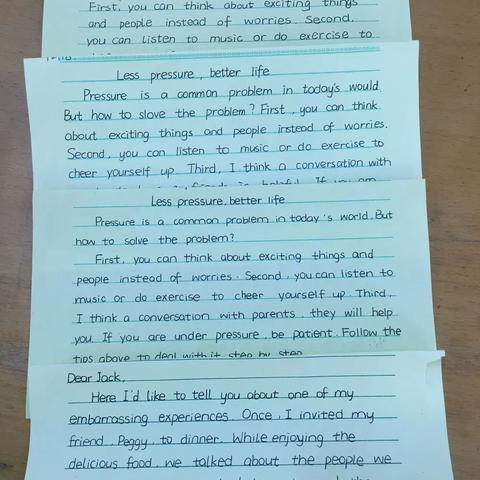 First, you can think about exciting things
and people instead of worries. Second,
you can listen to music or do exercise to
Less pressure, better life
Pressure is a common problem in today's would.
But how to slove the problem? First, you can think
about exciting things and people instead of worries.
Second, you can listen to music or do exercise to
cheer yourself up. Third, I think a conversation with
is helpful. If you are
Less pressure, better life
Pressure is a common problem in today's world. But
how to solve the problem?
First, you can think about exciting things and
people instead of worries. Second, you can listen to
music or do exercise to cheer yourself up. Third,
I think a conversation with parents, they will help
you. If you are under pressure, be patient. Follow the
tips above to deal with it step by step.
Dear Jack,
Here I'd like to tell you about one of my
embarrassing experiences. Once, I invited my
friend, Peggy, to dinner. While enjoying the
delicious food, we talked about the people we